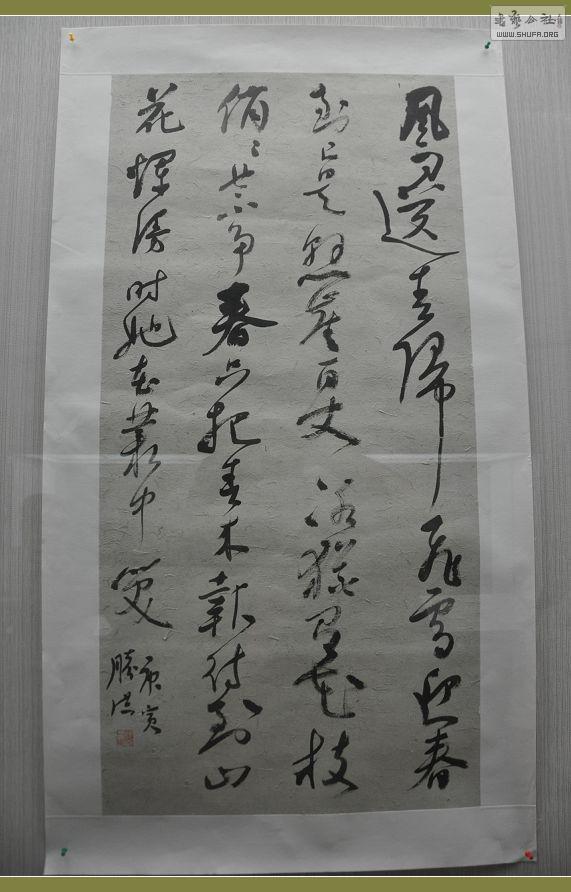 書藝公社
WWW.SHUFA.ORG
風雨送春歸飛雪迎春
到已是懸崖百丈冰猶有花枝
俏〻也不争春只把春来報待到山
花爛漫时她在叢中笑
庚寅